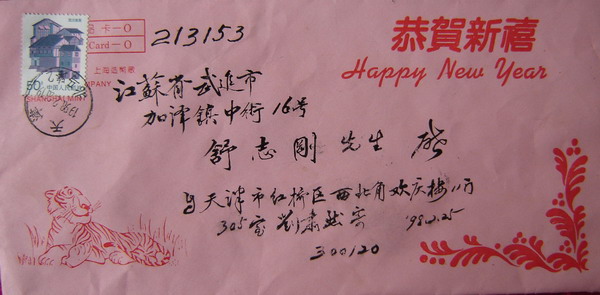 50分
中国人民邮政
卡—O
Card—O
上海造纸
MPANY
SHANGHAI MIN
天津
213153
恭賀新禧
Happy New Year
江蘇省武進市
加澤鎮中街16号
舒志剛先生 啟
天津市红桥区西北角欢庆楼11门
305室 劉肅然寄 '98.2.25
300120